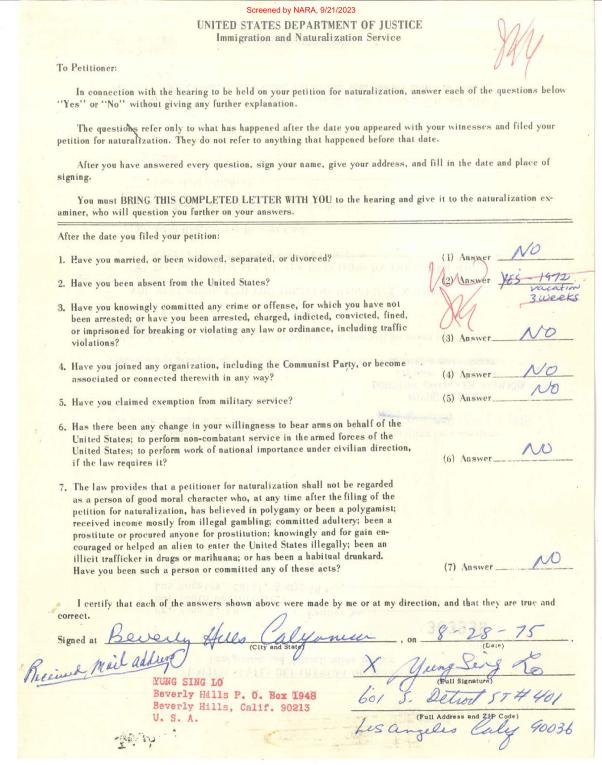 Screened by NARA, 9/21/2023
UNITED STATES DEPARTMENT OF JUSTICE
Immigration and Naturalization Service
To Petitioner:
In connection with the hearing to be held on your petition for naturalization, answer each of the questions below
"Yes" or "No" without giving any further explanation.
The questions refer only to what has happened after the date you appeared with your witnesses and filed your
petition for naturalization. They do not refer to anything that happened before that date.
After you have answered every question, sign your name, give your address, and fill in the date and place of
signing.
You must BRING THIS COMPLETED LETTER WITH YOU to the hearing and give it to the naturalization ex-
aminer, who will question you further on your answers.
After the date you filed your petition:
1. Have you married, or been widowed, separated, or divorced? (1) Answer NO
2. Have you been absent from the United States? (2) Answer YES - 1972
vacation
3 weeks
3. Have you knowingly committed any crime or offense, for which you have not
been arrested; or have you been arrested, charged, indicted, convicted, fined,
or imprisoned for breaking or violating any law or ordinance, including traffic
violations? (3) Answer NO
4. Have you joined any organization, including the Communist Party, or become
associated or connected therewith in any way? (4) Answer NO
5. Have you claimed exemption from military service? (5) Answer NO
6. Has there been any change in your willingness to bear arms on behalf of the
United States; to perform non-combatant service in the armed forces of the
United States; to perform work of national importance under civilian direction,
if the law requires it? (6) Answer NO
7. The law provides that a petitioner for naturalization shall not be regarded
as a person of good moral character who, at any time after the filing of the
petition for naturalization, has believed in polygamy or been a polygamist;
received income mostly from illegal gambling; committed adultery; been a
prostitute or procured anyone for prostitution; knowingly and for gain en-
couraged or helped an alien to enter the United States illegally; been an
illicit trafficker in drugs or marihuana; or has been a habitual drunkard.
Have you been such a person or committed any of these acts? (7) Answer NO
I certify that each of the answers shown above were made by me or at my direction, and that they are true and
correct.
Signed at Beverly Hills , on 8-28-75
(City and State) (Date)
Received Mail address
X Yung Sing Lo
(Full Signature)
YUNG SING LO
Beverly Hills P. O. Box 1948
Beverly Hills, Calif. 90213
U. S. A.
601 S. Detroit ST # 401
(Full Address and ZIP Code)
Los Angeles Calif 90036